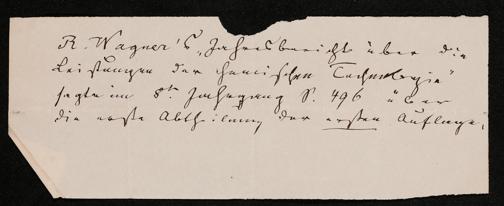 R. Wagner's „Jahresbericht über die
Leistungen der chemischen Technologie“
sagte im 8ten Jahrgang S. 496 über
die erste Abtheilung der ersten Auflage: